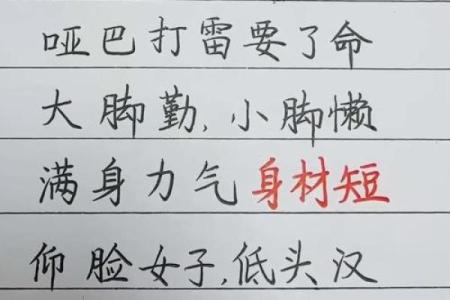 哑巴打雷要了命
大脚勤,小脚懒
满身力气身材短
仰脸女子,低头汉